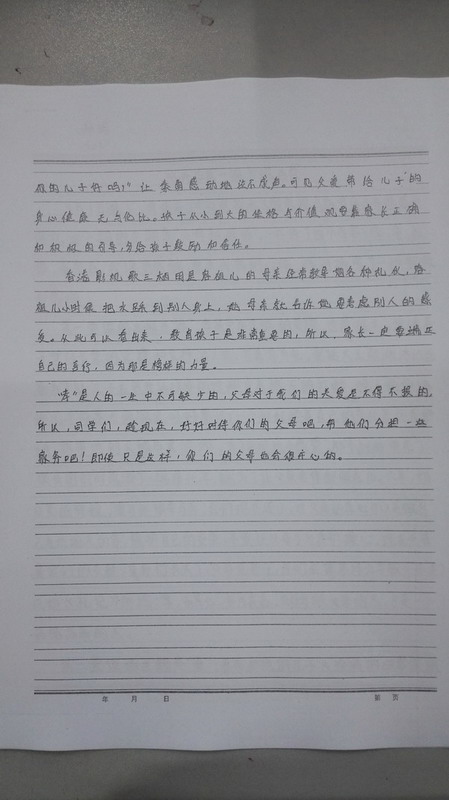 做的儿子好吗?"让亲自感动地说不成声。可见父爱带给儿子的
身心健康无与伦比。孩子从小到大的性格与价值观要靠家长正确
和积极的引导,多给孩子鼓励和责任。
香港影视歌三栖明星房祖儿的母亲经常教导她各种礼仪,
祖儿小时候把水踩到别人身上,她母亲就告诉她要考虑别人的感
受。从此可以看出来,教育孩子是非常重要的,所以,家长一定要端正
自己的言行,因为那是榜样的力量。
"孝"是人的一生中不可缺少的,父母对于我们的关爱是不得不报的。
所以,同学们,趁现在,好好对待你们的父母吧,帮他们分担一些
家务吧!即使只是这样,你们的父母也会很开心的。
年 月 日
第 页